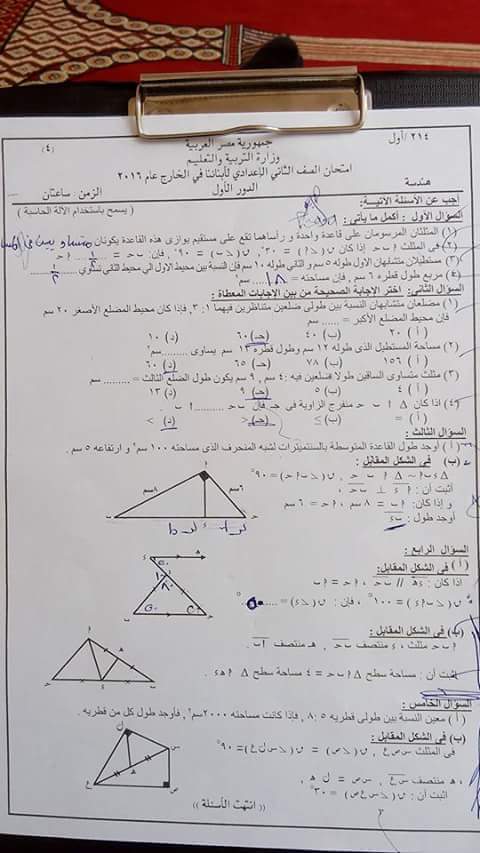 ٢١٤/أول
جمهورية مصر العربية
(٤)
وزارة التربية والتعليم
امتحان الصف الثاني الإعدادي لأبنائنا في الخارج عام ٢٠١٦
هندسة
الدور الأول
الزمن: ساعتان
أجب عن الأسئلة الآتية:
( يسمح باستخدام الآلة الحاسبة )
السؤال الأول : أكمل ما يأتي:
(١) المثلثان المرسومان على قاعدة واحدة و رأساهما تقع على مستقيم يوازى هذه القاعدة يكونان متساويين في
(٢) فى المثلث ٢ ب حـ إذا كان ق(<٢) = ٣٠°، ق(<ب) = ٩٠°، فإن: ب حـ = ١/٢ ٢ حـ
(٣) مستطيلان متشابهان الأول طوله ٥ سم و الثاني طوله ١٠ سم فإن النسبة بين محيط الأول الى محيط الثاني تساوي ١/٢
(٤) مربع طول قطره ٦ سم , فإن مساحته = ١٨ سم²
السؤال الثاني: اختر الإجابة الصحيحة من بين الاجابات المعطاة :
(١) مضلعان متشابهان النسبة بين طولى ضلعين متناظرين فيهما ١: ٣, فإذا كان محيط المضلع الأصغر ٢٠ سم
فإن محيط المضلع الأكبر = ...... سم
(أ) ٢٠ (ب) ٤٠ (حـ) ٦٠ (د) ١٠
(٢) مساحة المستطيل الذى طوله ١٢ سم وطول قطره ١٣ سم يساوى ........ سم²
(أ) ١٥٦ (ب) ٧٨ (حـ) ٦٥ (د) ٦٠
(٣) مثلث متساوى الساقين طولا ضلعين فيه : ٤ سم , ٩ سم يكون طول الضلع الثالث = ........ سم
(أ) ٤ (ب) ٥ (حـ) ٩ (د) ١٣
(٤) إذا كان Δ ٢ ب حـ منفرج الزاوية فى حـ فإن ب حـ ......... ٢ ب
(أ) = (ب) ≥ (حـ) < (د) >
السؤال الثالث :
(أ) أوجد طول القاعدة المتوسطة بالسنتيمترات لشبه المنحرف الذى مساحته ١٠٠ سم² و ارتفاعه ٥ سم .
(ب) فى الشكل المقابل :
٦سم
٨سم
وإذا كان: ٢ب = ٨ سم , ٢حـ = ٦ سم
أوجد طول : ب ء
السؤال الرابع :
(أ) في الشكل المقابل:
اذا كان : ء هـ // ب حـ , ٢حـ = ٢ب
ق(<ب٢ء) = ١٠٠° , فإن : ق(<ء) =
(ب) فى الشكل المقابل :
٢ب حـ مثلث , ء منتصف ب حـ , هـ منتصف ٢ب .
إثبت أن : مساحة سطح Δ ٢ب حـ = ٤ مساحة سطح Δ ٢هـ ء
السؤال الخامس :
(أ) معين النسبة بين طولى قطريه ٥ : ٨ , فإذا كانت مساحته ٢٠٠٠سم² , فأوجد طول كل من قطريه .
(ب) فى الشكل المقابل :
فى المثلث س ص ع , ق(<ص) = ق(<س ل ع) = ٩٠°
, هـ منتصف س ع , س ص = ل هـ ,
أثبت أن : ق(<س ع ص) = ٣٠°
(( انتهت الأسئلة ))